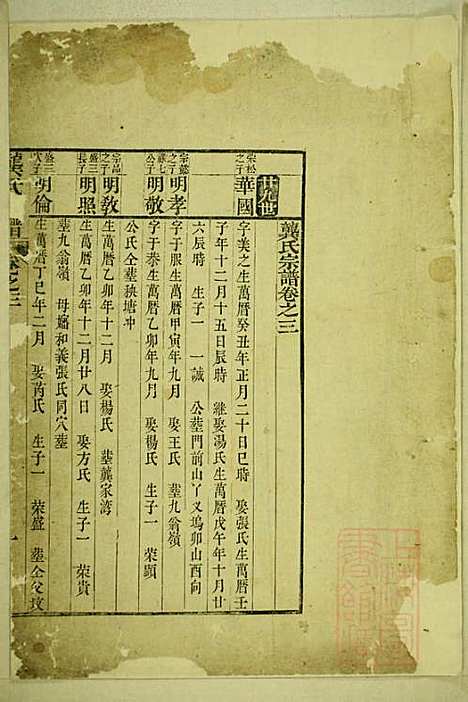 龔氏宗譜卷之三
廿九世
榮松之子 華國 字美之生萬曆癸丑年正月二十日巳時 娶張氏生萬曆壬
子年十二月十五日辰時 繼娶湯氏生萬曆戊午年十月廿
六辰時 生子一 一誠 公塟門前山丫叉塢卯山酉向
宗懿之子 明孝 字于服生萬曆甲寅年九月 娶王氏 塟九翁嶺
明敬 字于泰生萬曆乙卯年九月 娶楊氏 生子一 榮顯
公氏仝塟秧塘冲
宗高之子 明敎 生萬曆乙卯年十二月 娶楊氏 塟龔家湾
盛三長子 明照 生萬曆乙卯年十二月廿八日 娶方氏 生子一 榮貴
塟九翁嶺 母嬸和義張氏同穴塟
盛三次子 明倫 生萬曆丁巳年二月 娶芮氏 生子一 榮盛 塟仝父坟
龔氏 譜 卷之三 一